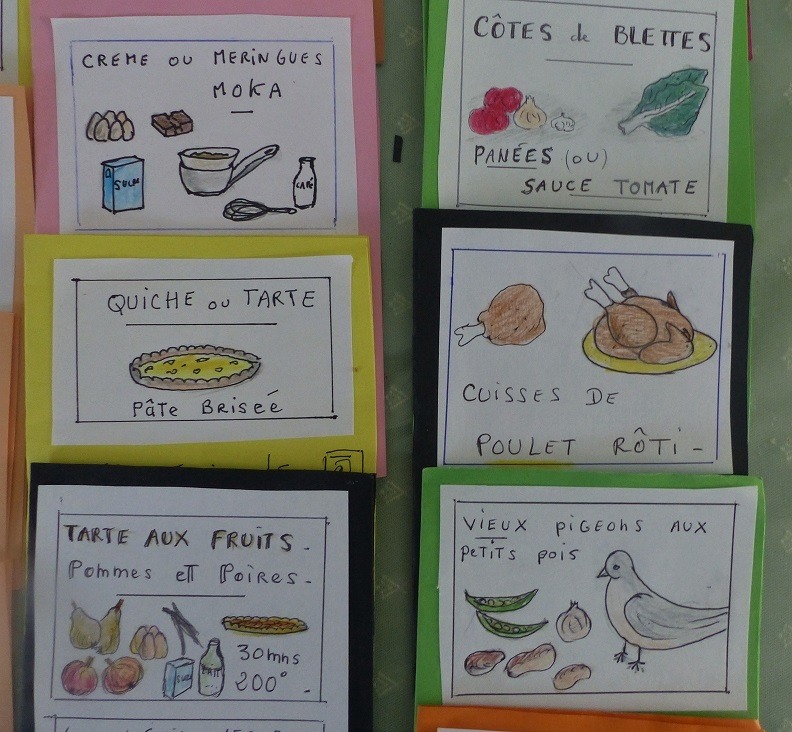 CREME OU MERINGUES
MOKA
SUCRE
CAFÉ
QUICHE OU TARTE
PâTE BRISEÉ
TARTE AUX FRUITS.
Pommes eT Poires.
30mns
200°.
LAIT
CÔTES de BLETTES
PANÉES (OU)
SAUCE TOMATE
CUISSES DE
POULET RÔTI-
VIEUX PIGEONS AUX
PeTiTS POIS